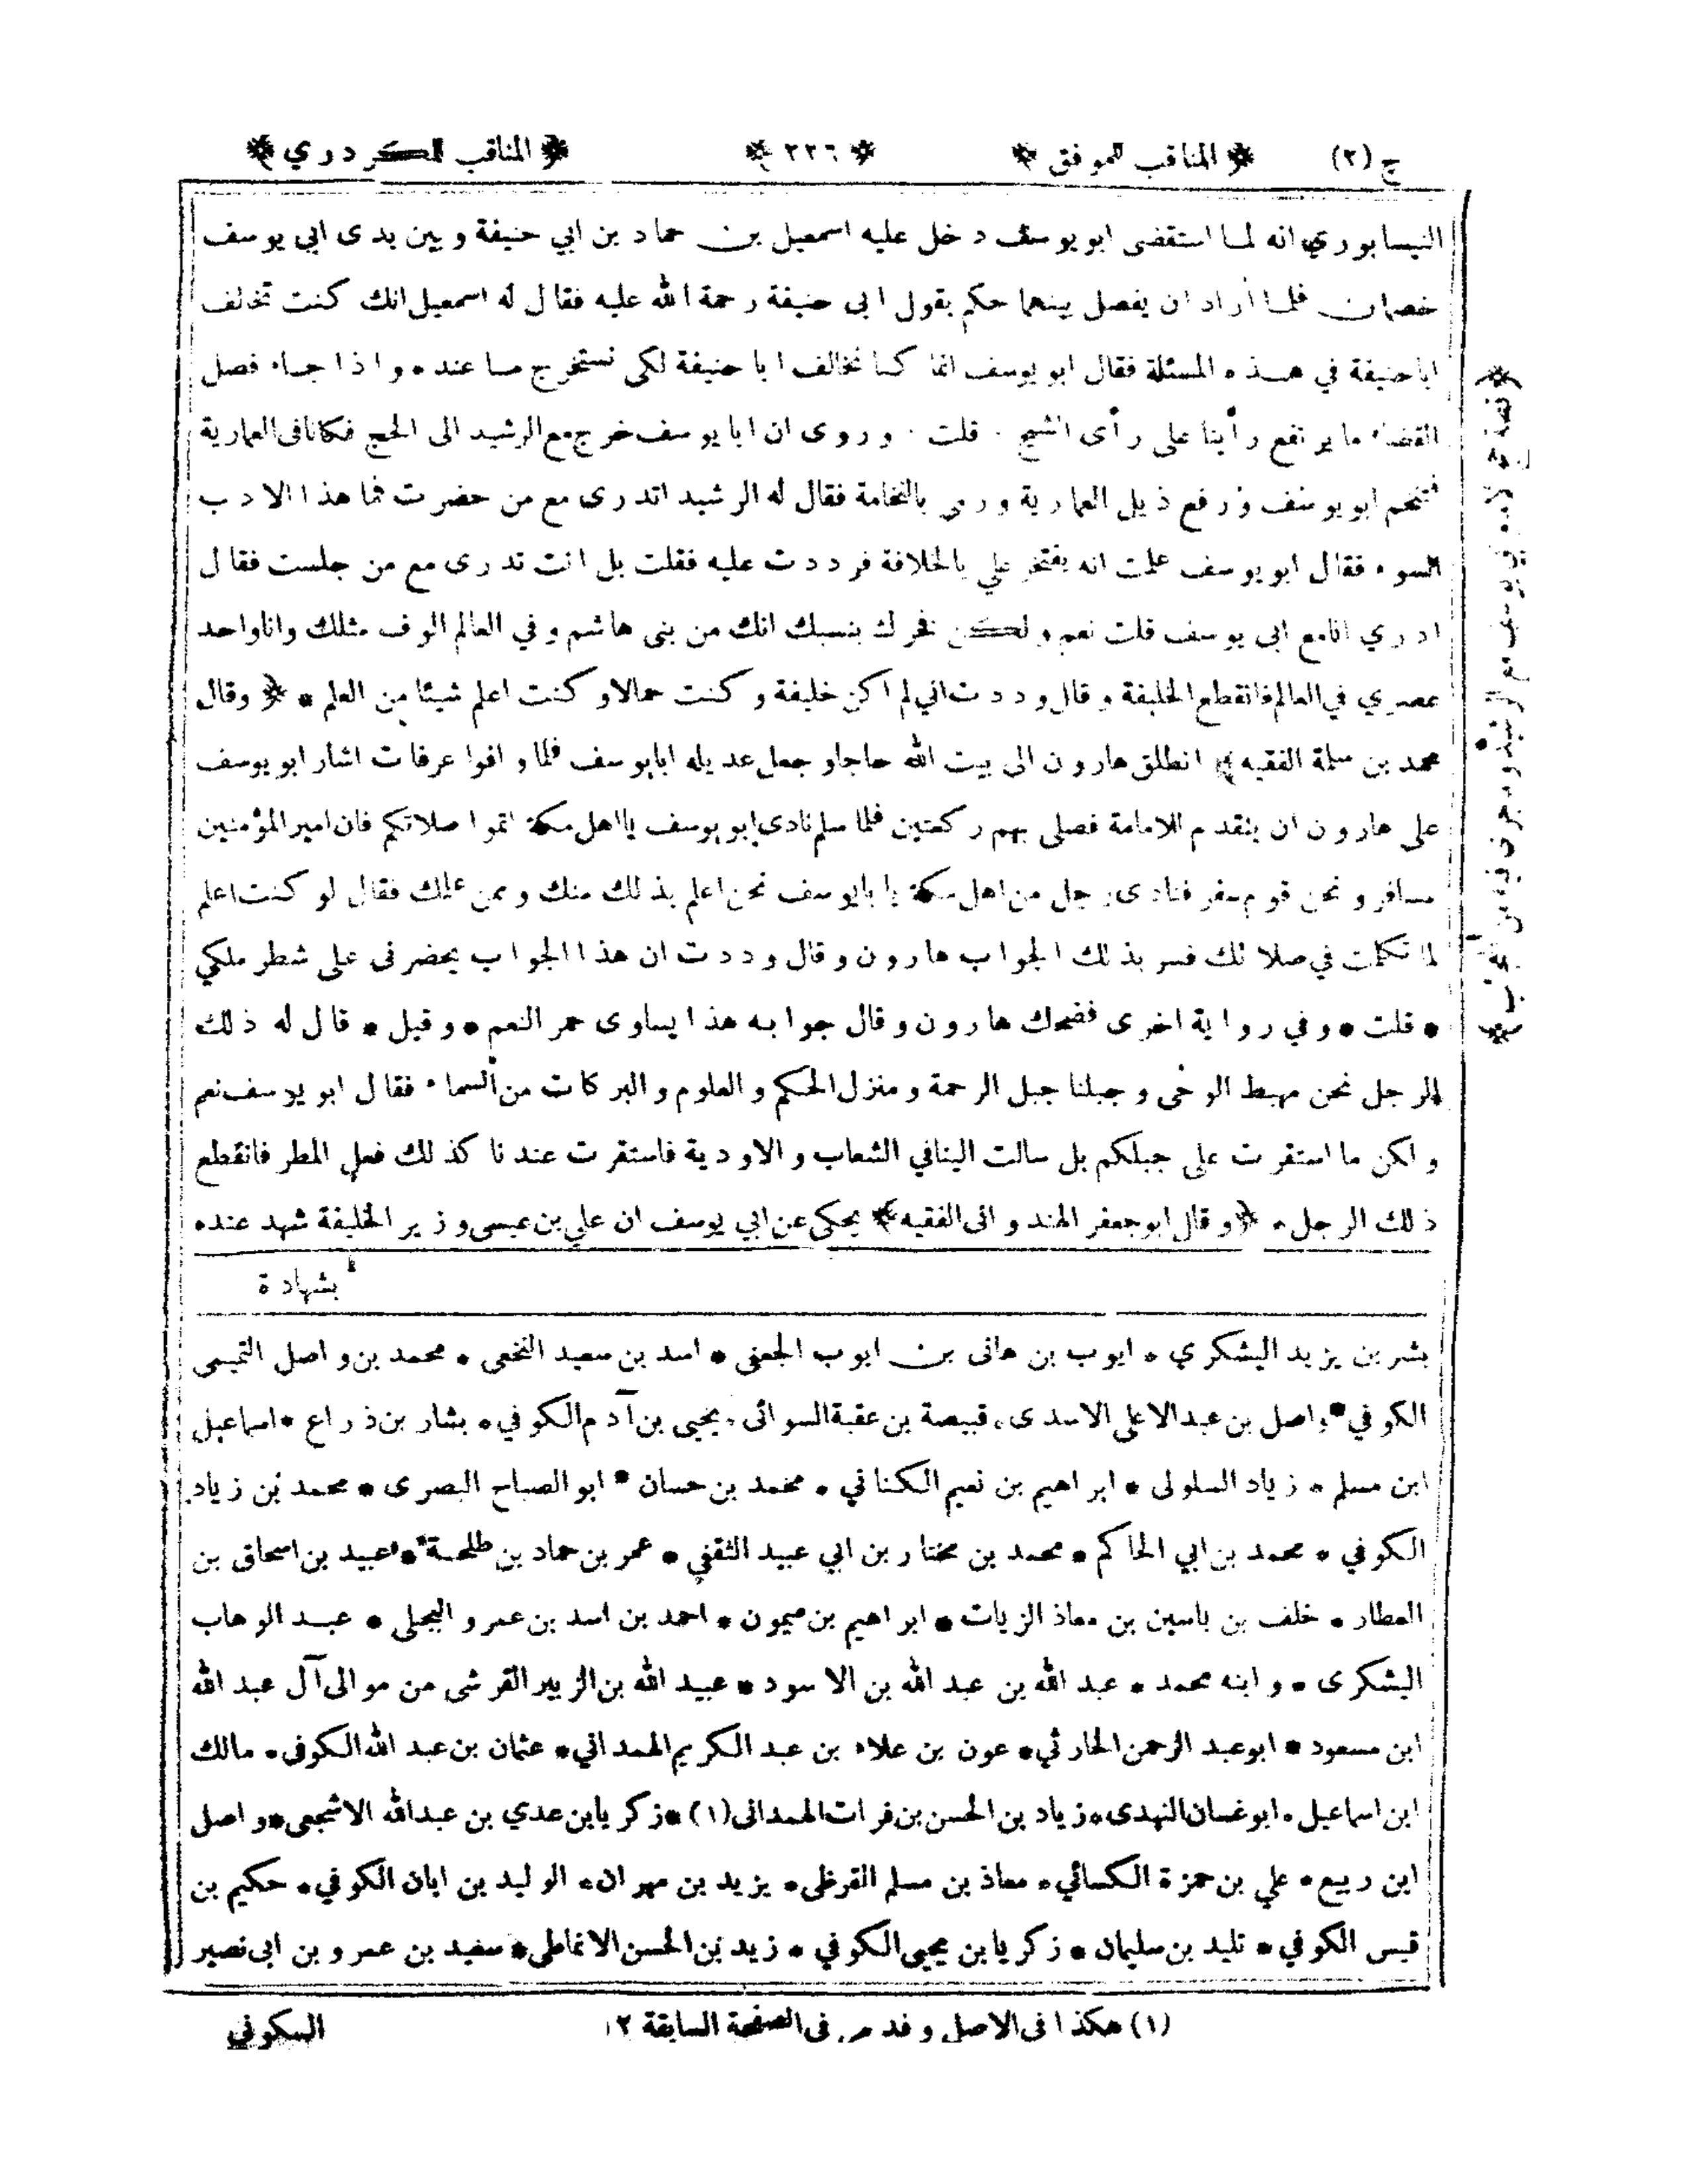 ج (٢) ﴿ المناقب للموفق ﴾ ﴿ ٢٢٦ ﴾ ﴿ المناقب للكردري ﴾
النيسابوري انه لما استقضى ابو يوسف دخل عليه اسمعيل بن حماد بن ابي حنيفة وبين يدى ابي يوسف
خصمان فلما أراد ان يفصل بينهما حكم بقول ابى حنيفة رحمة الله عليه فقال له اسمعيل انك كنت تخالف
اباحنيفة في هذه المسئلة فقال ابو يوسف انما كنا نخالف ابا حنيفة لكى نستخرج ما عنده واذا جاء فصل
القضاء ما يرتفع رأينا على رأى الشيخ . قلت . وروى ان ابا يوسف خرج مع الرشيد الى الحج فكانا فى العمارية
فتنخم ابو يوسف ورفع ذيل العمارية ورمى بالنخامة فقال له الرشيد اتدرى مع من حضرت فما هذا الادب
السوء فقال ابو يوسف علمت انه يفتخر علي بالخلافة فرددت عليه فقلت بل انت تدرى مع من جلست فقال
ادري انا مع ابى يوسف قلت نعم ولكن فخرك بنسبك انك من بنى هاشم وفي العالم الوف مثلك وانا واحد
عصري في العالم فانقطع الخليفة وقال وددت اني لم اكن خليفة وكنت حمالا وكنت اعلم شيئا من العلم * ﴿ وقال
محمد بن سلمة الفقيه ﴾ انطلق هارون الى بيت الله حاجا وجعل عديله ابا يوسف فلما وافوا عرفات اشار ابو يوسف
على هارون ان يتقدم للامامة فصلى بهم ركعتين فلما سلم نادى ابو يوسف يا اهل مكة اتموا صلاتكم فان امير المؤمنين
مسافر ونحن قوم سفر فنادى رجل من اهل مكة يا ابا يوسف نحن اعلم بذلك منك وممن علمك فقال لو كنت اعلم
لما تكلمت في صلاتك فسر بذلك الجواب هارون وقال وددت ان هذا الجواب يحضرنى على شطر ملكي
* قلت * وفي رواية اخرى فضحك هارون وقال جوابه هذا يساوى حمر النعم * وقيل * قال له ذلك
الرجل نحن مهبط الوحى وجبلنا جبل الرحمة ومنزل الحكم والعلوم والبركات من السماء فقال ابو يوسف نعم
ولكن ما استقرت على جبلكم بل سالت الينا في الشعاب والاودية فاستقرت عندنا كذلك فعل المطر فانقطع
ذلك الرجل * ﴿ وقال ابو جعفر الهندوانى الفقيه ﴾ يحكى عن ابي يوسف ان علي بن عيسى وزير الخليفة شهد عنده
بشهادة
بشر بن يزيد اليشكري * ايوب بن هانى بن ايوب الجعفي * اسد بن سعيد النخعى * محمد بن واصل التميمى
الكوفي * واصل بن عبد الاعلى الاسدى * قبيصة بن عقبة السوائى * يحيى بن آدم الكوفي * بشار بن ذراع * اسماعيل
ابن مسلم * زياد السلولى * ابراهيم بن نعيم الكناني * محمد بن حسان * ابو الصباح البصرى * محمد بن زياد
الكوفي * محمد بن ابي الحاكم * محمد بن مختار بن ابي عبيد الثقفي * عمر بن حماد بن طلحة * عبيد بن اسحاق بن
العطار * خلف بن ياسين بن معاذ الزيات * ابراهيم بن ميمون * احمد بن اسد بن عمرو البجلى * عبد الوهاب
اليشكرى * وابنه محمد * عبد الله بن عبد الله بن الاسود * عبيد الله بن الزبير القرشى من موالى آل عبد الله
ابن مسعود * ابو عبد الرحمن الحارثي * عون بن علاء بن عبد الكريم الهمداني * عثمان بن عبد الله الكوفى * مالك
ابن اسماعيل * ابو غسان النهدى * زياد بن الحسن بن فرات الهمدانى (١) * زكريا بن عدي بن عبد الله الاشجعى * واصل
ابن ربيع * علي بن حمزة الكسائي * معاذ بن مسلم القرظى * يزيد بن مهران * الوليد بن ابان الكوفي * حكيم بن
قيس الكوفي * تليد بن سليمان * زكريا بن يحيى الكوفي * زيد بن الحسن الانماطى * سعيد بن عمرو بن ابى نصير
(١) هكذا فى الاصل وقد مر فى الصفحة السابقة ١٢
السكوني